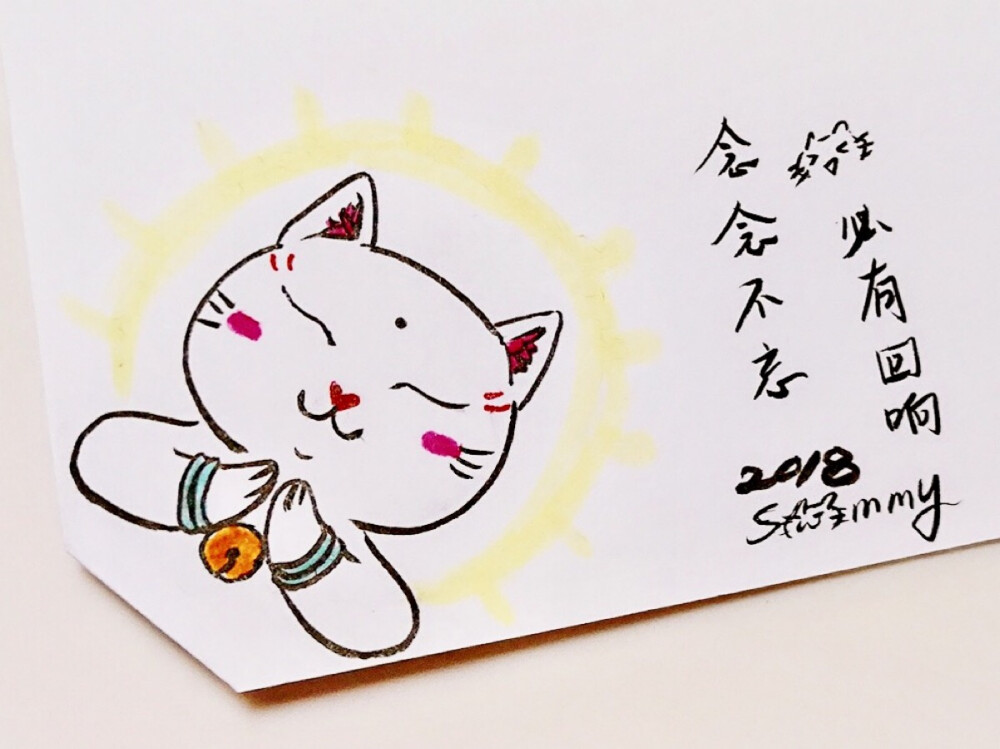 念念不忘
必有回响
2018